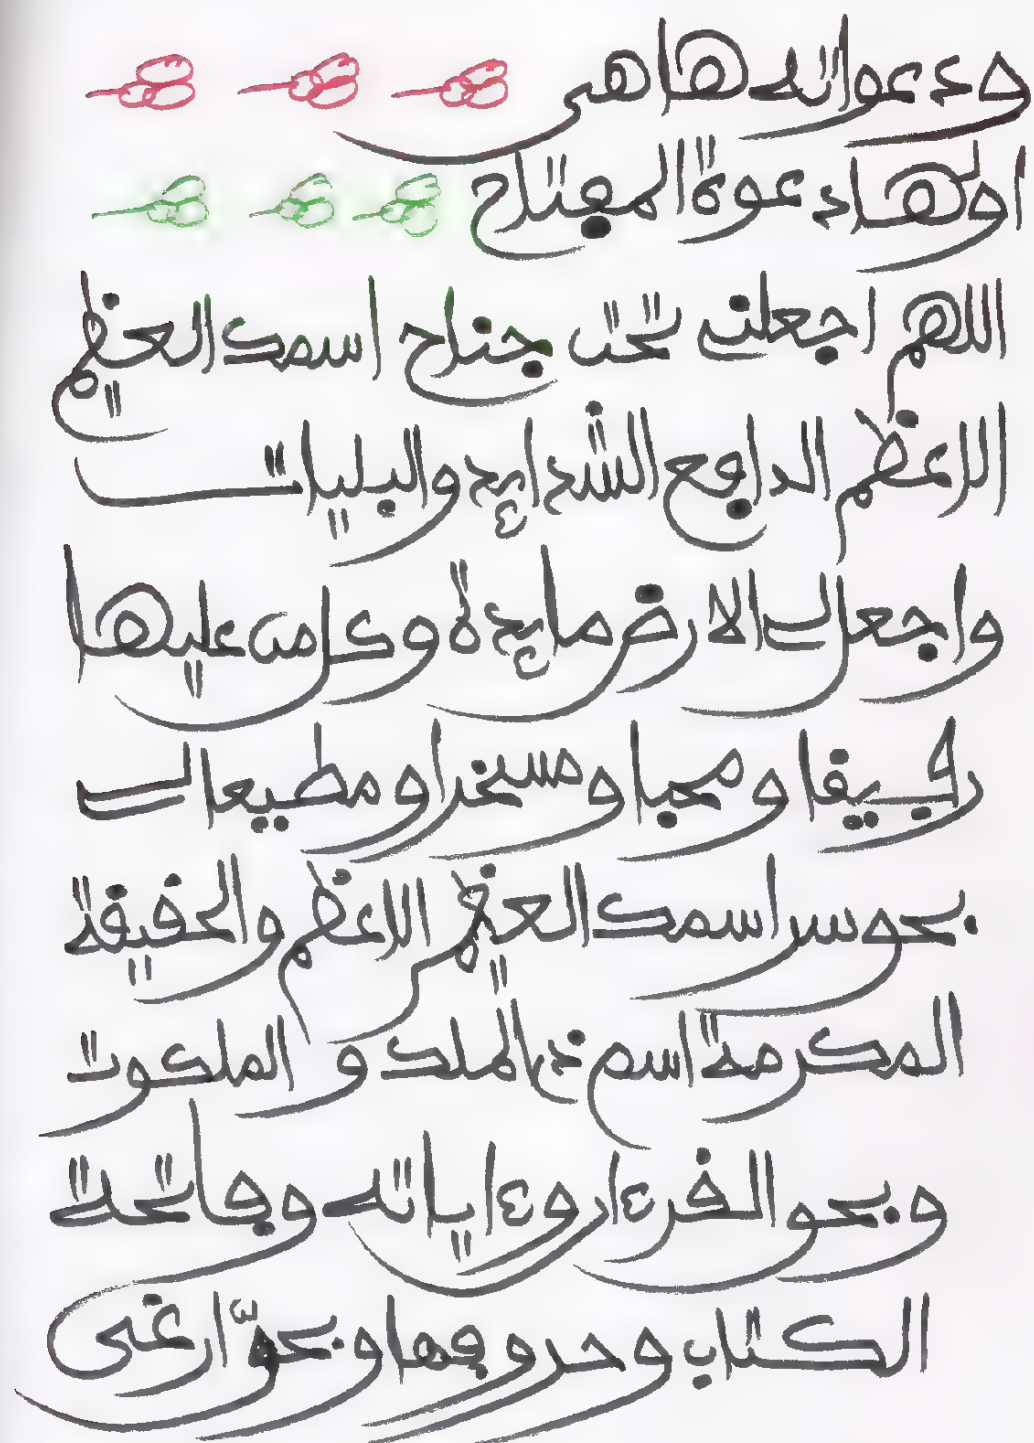 ودعواته ها هي
اولها دعوة المفتاح
اللهم اجعلني تحت جناح اسمك العظيم
الاعظم الدافع الشدايد والبليات
واجعل لي الارض مايدة وكل من عليها
رفيقا ومحبا ومسخرا ومطيعا لي
بحق سر اسمك العظيم الاعظم والحقيقة
المكرمة اسم ذي الملك و الملكوت
وبحق القرءان وءاياته وفاتحة
الكتاب وحروفها وبحق